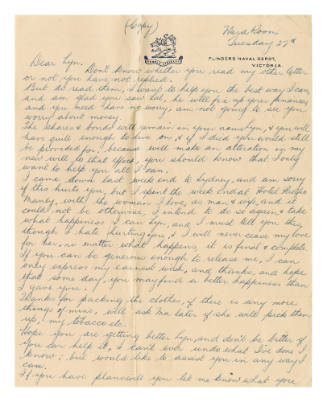 (Copy)
Ward Room
Tuesday 27th
FLINDERS NAVAL DEPOT,
VICTORIA.
Dear Lyn.
Don't know whether you read my other letter
or not, you have not replied.
But do read them, I want to help you the best way I can
and am glad you saw Ted, he will fix up your finances
and you need have no worry, am not going to see you
worry about money.
The shares & bonds will remain in your name Lyn, & you will
have quite enough to live on, & if I died you would still
be provided for, because will make an alteration in my
new will to that effect. you should know that I only
want to help you all I can.
I came down last weekend to Sydney, and am sorry
if this hurts you, but I spent the week End at Hotel
Manly, with the woman I love, as man & wife, and it
could not be otherwise, I intend to do so again & take
what happens I can Lyn, and I must tell you this
though I hate hurting you, & I will never cease my love
for her, no matter what happens, it is final & complete
If you can be generous enough to release me, I can
only express my earnest wish, and thanks, and hope
that some day, you may find a better happiness than
I gave you.
Thanks for packing the clothes, if there is any more
things of mine, will ask later if she will pick them
up, & my tobacco etc.
Hope you are getting better Lyn, and don't be bitter if
you can help it, I can't ever undo what I've done I
know; but would like to assist you in any way I
can.
If you have planned will you let me know what you